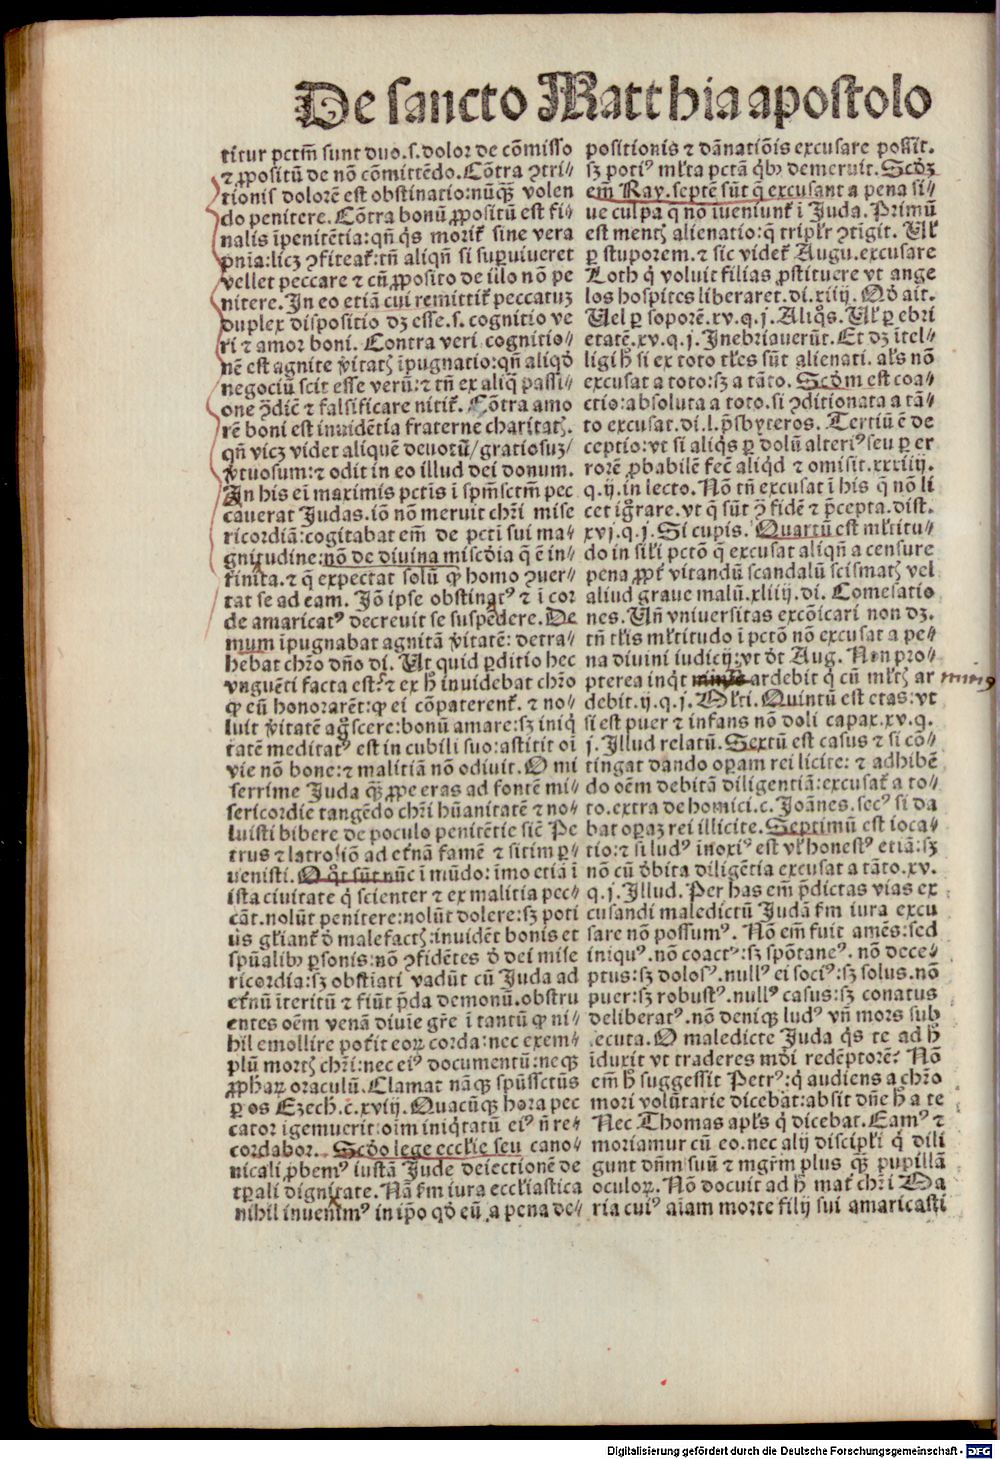 De sancto Matthia apostolo
titur pctm̄ sunt duo.s.dolor de cōmisso
⁊ ꝓpositū de nō cōmittēdo. Cōtra ꝯtri⸗
tionis dolorē est obstinatio: nūqꝫ volen
do penitere. Cōtra bonū ꝓpositū est fi⸗
nalis īpenitētia: qn̄ q̇s morit᷑ sine vera
pn̄ia: licꝫ ꝯfiteat᷑: tn̄ aliqn̄ si suꝑuiueret
vellet peccare ⁊ cū ꝓposito de illo nō pe
nitere. In eo etiā cui remittit᷑ peccatuꝫ
duplex dispositio dꝫ esse.s. cognitio ve
ri ⁊ amor boni. Contra veri cognitio⸗
nē est agnite v̓itatꝭ īpugnatio: qn̄ aliqd̓
negociū scit esse verū: ⁊ tn̄ ex aliq̄ passi⸗
one ꝯ̄dic̄ ⁊ falsificare nitit᷑. Cōtra amo
rē boni est inuidētia fraterne charitatꝭ.
qn̄ vicꝫ videt aliquē deuotū/ gratiosuꝫ/
v̓tuosum: ⁊ odit in eo illud dei donum.
In his ei̅ maximis pctīs ī spm̄sctm̄ pec
cauerat Judas. iō nō meruit chr̄i mise
ricordiā: cogitabat em̄ de pcti sui ma⸗
gnitudine: nō de diuina miscd̓ia q̄ ē in⸗
finita. ⁊ q̄ expectat solū ꝙ homo ꝯuer⸗
tat se ad eam. Jō ipse obstinatꝰ ⁊ ī cor
de amaricatꝰ decreuit se suspēdere. De
mum īpugnabat agnitā v̓itatē: detra⸗
hebat chr̄o dn̄o di. Ut quid ꝑditio hec
vnguēti facta est: ⁊ ex h̄ inuidebat chr̄o
ꝙ eū honorarēt: ꝙ ei cōpaterent᷑. ⁊ no⸗
luit v̓itatē agnoscere: bonū amare: sꝫ iniq̇
tatē meditatꝰ est in cubili suo: astitit oī
vie nō bone: ⁊ malitiā nō odiuit. O mi
serrime Juda qꝫ ꝓpe eras ad fontē mi⸗
sericordie tangēdo chr̄i hūanitatē ⁊ no⸗
luisti bibere de poculo penitētie sic̄ Pe
trus ⁊ latro: iō ad et᷑nā famē ⁊ sitim ꝑ⸗
uenisti. O q̊t sūt nūc ī mūdo: imo etiā ī
ista ciuitate q̇ scienter ⁊ ex malitia pec⸗
cāt. nolūt penitere: nolūt dolere: sꝫ poti
us gl̄iant᷑ d̓ malefactꝭ: inuidēt bonis et
spūalibꝰ ꝑsonis: nō ꝯfidētes d̓ dei mise
ricordia: sꝫ obstīati vadūt cū Juda ad
et᷑nū īteritū ⁊ fiūt p̄da demonū. obstru
entes oēm venā diuīe gr̄e ī tantū ꝙ ni⸗
hil emollire pot̄it eoꝝ corda: nec exem⸗
plū mortꝭ chr̄i: nec eiꝰ documentū: neqꝫ
ꝓphaꝝ oraculū. Clamat nāqꝫ spūssctūs
ꝑ os Ezech. c̄. xviij. Quacūqꝫ hora pec
cator igemuerit: oīm iniq̇tatū eiꝰ n̄ re⸗
cordabor. Scd̓o lege eccl̄ie seu cano⸗
nicali ꝓbemꝰ iustā Jude deiectionē de
tꝑali dignitate. Nā fm̄ iura eccl̄iastica
nihil inuenimꝰ in ip̄o qd̓ eū a pena de⸗
positionis ⁊ dānatiōis excusare possit.
sꝫ potiꝰ ml̄ta pctā qibꝰ demeruit. Scd̓ꝫ
em̄ Ray. septē sūt q̄ excusant a pena si⸗
ue culpa q̄ nō iueniunt᷑ ī Juda. Primū
est mentꝭ alienatio: q̄ tripl̄r ꝯtigit. Ul᷑
ꝑ stuporem. ⁊ sic videt᷑ Augu. excusare
Loth q̇ voluit filias ꝓstituere vt ange
los hospites liberaret. di. xiiij. Qd̓ ait.
Uel ꝑ soporē. xv. q. j. Aliqn̄. Ul᷑ ꝑ ebri
etatē. xv. q. j. Inebriauerūt. Et dꝫ ītel⸗
ligi h̄ si ex toto tales sūt alienati. al̓s nō
excusat a toto: sꝫ a tāto. Scd̓m est coa⸗
ctio: absoluta a toto. si ꝯditionata a tā⸗
to excusat. di. l. p̄sbyteros. Tertiū ē de
ceptio: vt si aliq̇s ꝑ dolū alteriꝰ seu ꝑ er
rorē ꝓbabilē fec̄ aliq̇d ⁊ omisit. xxxiiij.
q. ij. in lecto. Nō tn̄ excusat ī his q̄ nō li
cet ignorare. vt q̄ sūt ꝯ̄ fidē ⁊ p̄cepta. dist.
xvj. q. j. Si cupis. Quartū est ml̄titu⸗
do in sil̄i pctō q̄ excusat aliqn̄ a censure
pena ꝓpt᷑ vitandū scandalū scismatꝭ vel
aliud graue malū. xliiij. di. Comesatio
nes. Un̄ vniuersitas excōicari non dꝫ.
tn̄ tal̄is ml̄titudo ī pctō nō excusat a pe⸗
na diuini iudicij: vt dt̄ Aug. Non pro⸗
pterea inq̇t ardebit q̇ cū ml̄tꝭ ar minꝰ
debit. ij. q. j. Ml̄ti. Quintū est etas: vt
si est puer ⁊ infans nō doli capax. xv. q.
j. Illud relatū. Sextū est casus ⁊ si cō⸗
tingat dando oꝑam rei licite: ⁊ adhibē
do oēm debitā diligentiā: excusat᷑ a to⸗
to. extra de homici. c. Joānes. secꝰ si da
bat oꝑaꝫ rei illicite. Septimū est ioca⸗
tio: ⁊ si ludꝰ inoxiꝰ est vl᷑ honestꝰ etiā: sꝫ
nō cū d̓bita diligētia excusat a tāto. xv.
q. j. Illud. Per has em̄ p̄dictas vias ex
cusandi maledictū Judā fm̄ iura excu
sare nō possumꝰ. Nō em̄ fuit amēs: sed
iniquꝰ. nō coactꝰ: sꝫ spōtaneꝰ. nō dece⸗
ptus: sꝫ dolosꝰ. nullꝰ ei sociꝰ: sꝫ solus. nō
puer: sꝫ robustꝰ. nullꝰ casus: sꝫ conatus
deliberatꝰ. nō deniqꝫ ludꝰ vn̄ mors sub
secuta. O maledicte Juda q̇s te ad h̄
īduxit vt traderes mūdi redēptorē? Nō
em̄ h̄ suggessit Petrꝰ: q̇ audiens a chr̄o
mori volūtarie dicebat: absit dn̄e h̄ a te
Nec Thomas apl̓s q̇ dicebat. Eamꝰ ⁊
moriamur cū eo. nec alij discipl̄i q̇ dili
gunt dn̄m suū ⁊ mgr̄m plus qꝫ pupillā
oculoꝝ. Nō docuit ad h̄ mat᷑ chr̄i Ma
ria cuiꝰ aīam morte filij sui amaricasti
Digitalisierung gefördert durch die Deutsche Forschungsgemeinschaft - DFG